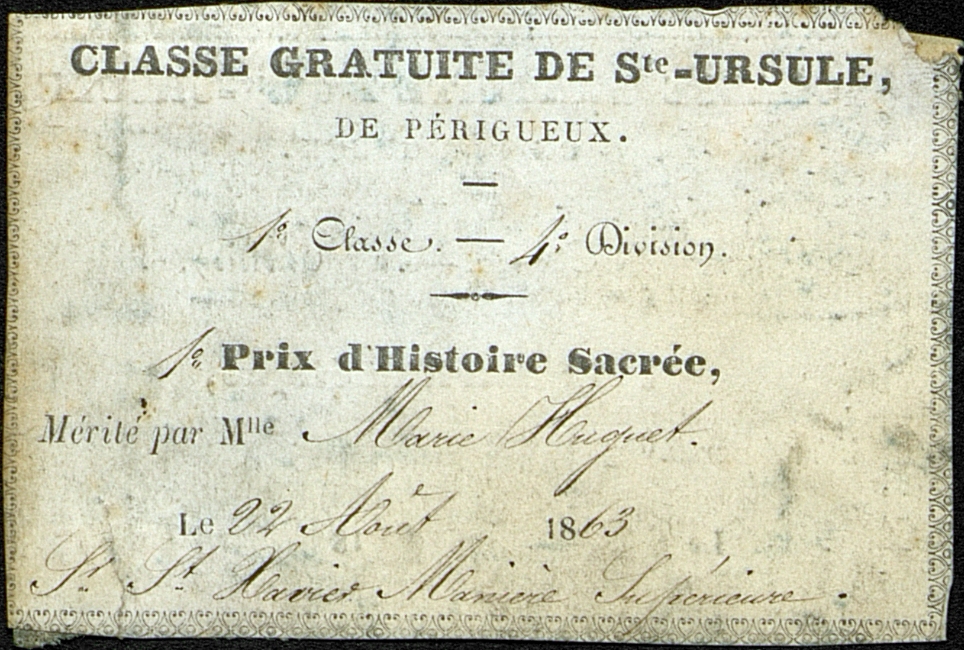 CLASSE GRATUITE DE Ste-URSULE,
DE PÉRIGUEUX.
1e Classe. — 4e Division.
1er Prix d'Histoire Sacrée,
Mérité par Mlle Marie Huguet.
Le 22 Août 1863
Sr St Xavier Manière Supérieure.